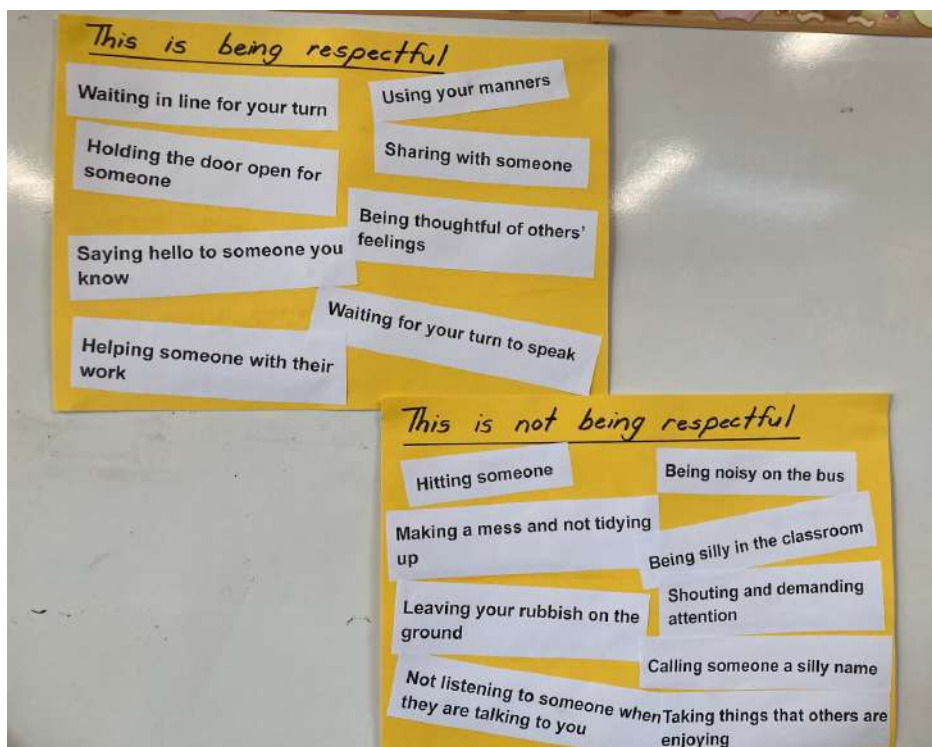 This is being respectful
Waiting in line for your turn
Holding the door open for
someone
Saying hello to someone you
know
Helping someone with their
work
Using your manners
Sharing with someone
Being thoughtful of others'
feelings
Waiting for your turn to speak
This is not being respectful
Hitting someone
Making a mess and not tidying
up
Leaving your rubbish on the
ground
Not listening to someone when
they are talking to you
Being noisy on the bus
Being silly in the classroom
Shouting and demanding
attention
Calling someone a silly name
Taking things that others are
enjoying